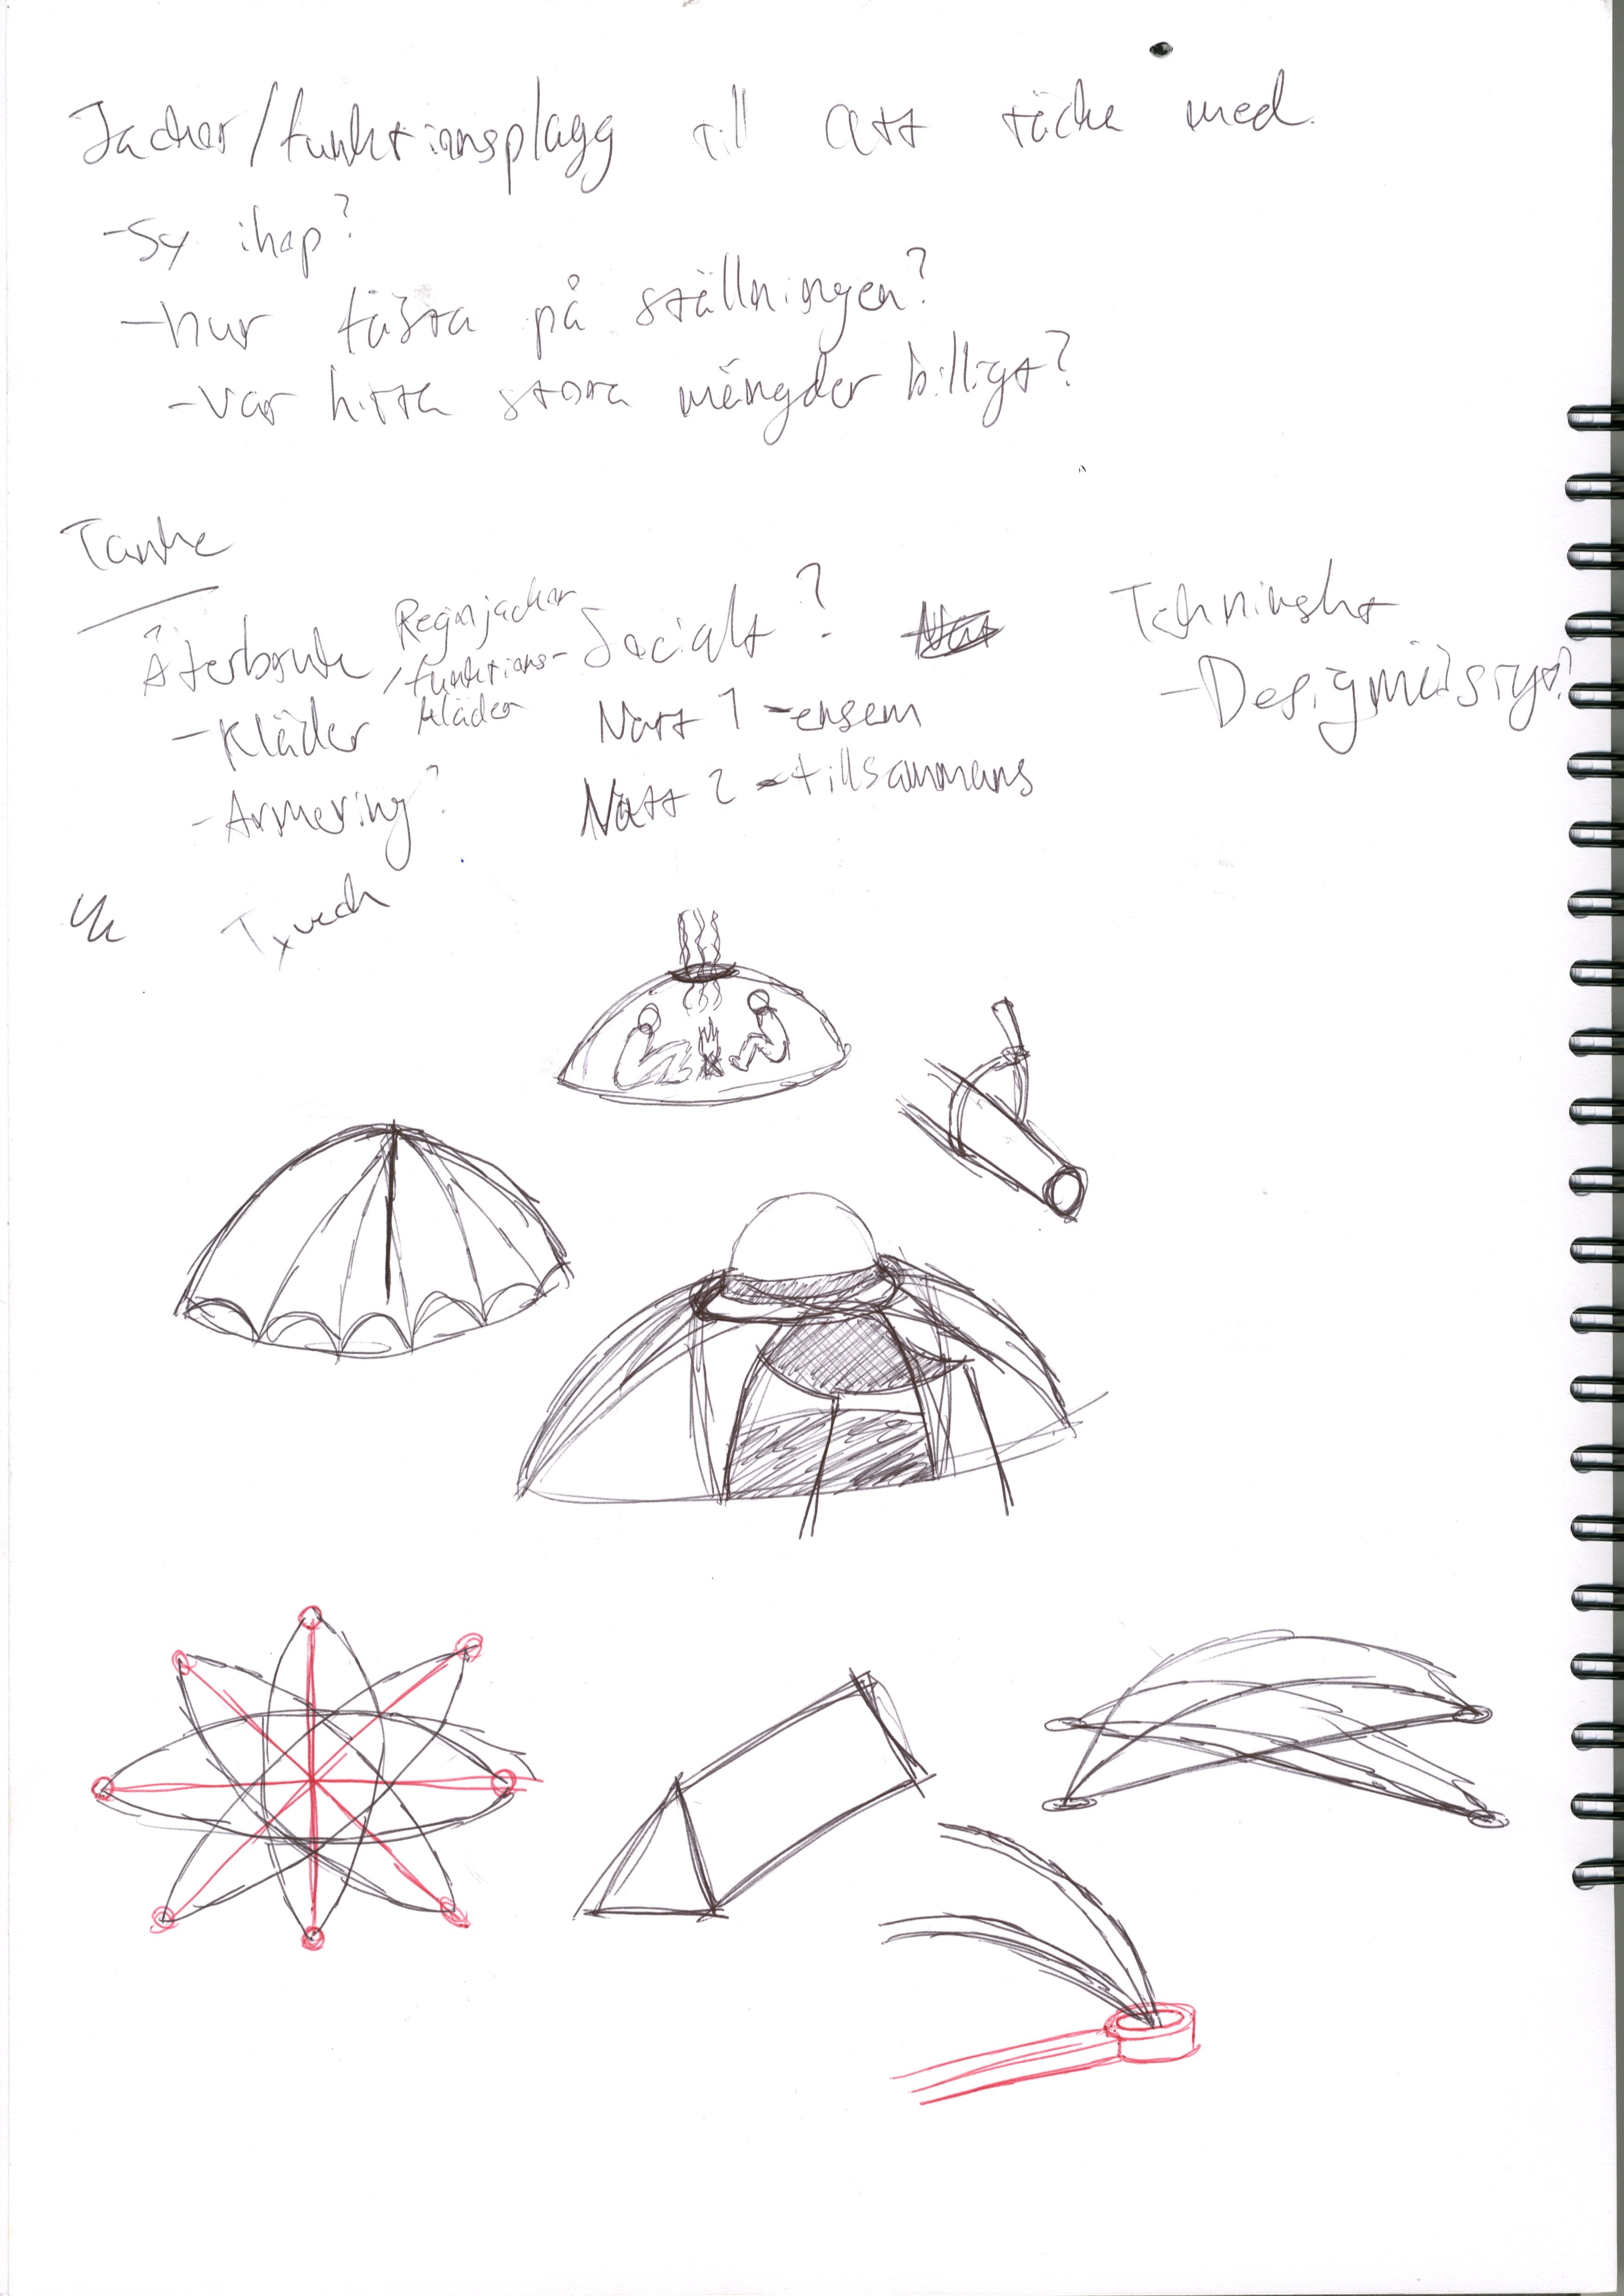 Jackor/funktionsplagg till att täcka med.
-Sy ihop?
-hur fästa på ställningen?
-var hitta stora mängder billigt?
Tanke
Återbruk
-Kläder
-Armering?
Regnjackor
/funktions-
kläder
Socialt?
Natt 1 -ensam
Natt 2 -tillsammans
-Designmässigt?